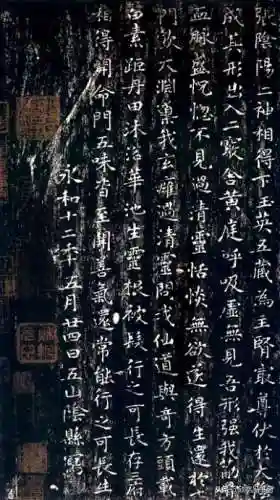 陰陽二神相得下玉英五藏為主腎最尊伏於大
成其形出入二竅舍黃庭呼吸虛無見吾形強我筋
血脈盛恍惚不見過清靈恬惔無欲遂得生還於
門飲大淵道我玄雍過清靈問我仙道與奇方頭戴
素距丹田沐浴華池生靈根被髮行之可長存府
相得開命門五味皆至開善氣還常能行之可長生
永和十二年五月廿四日五山陰縣寫